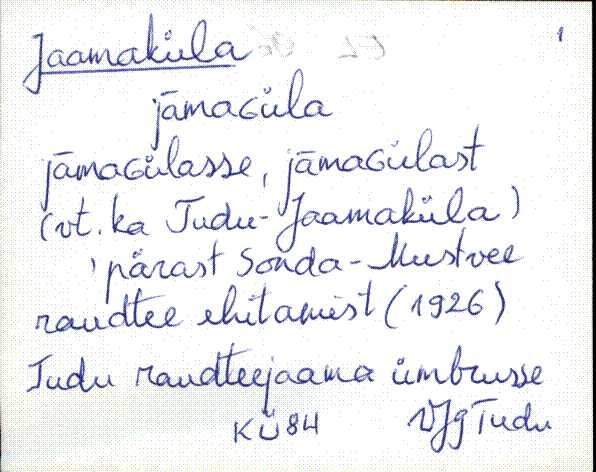 1
Jaamaküla
jāmaGüla
jāmaGülasse, jāmaGülast
(vt. ka Tudu-Jaamaküla)
'pärast Sonda-Mustvee
raudtee ehitamist (1926)
Tudu raudteejaama ümbrusse
KÜ 84 VJg Tudu